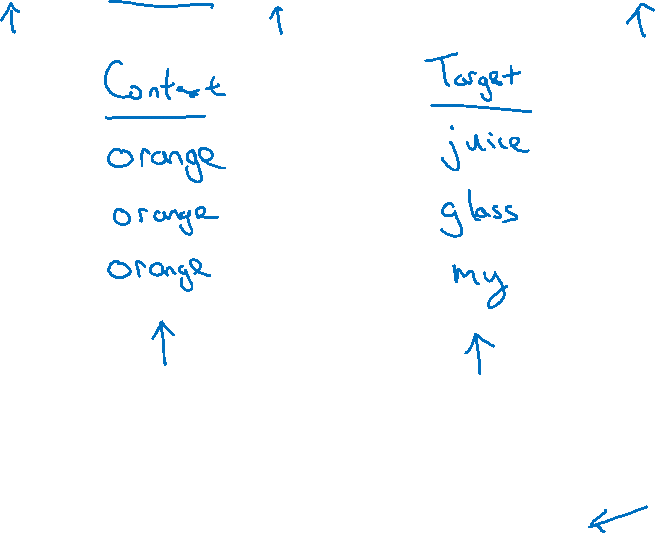 Context Target
orange juice
orange glass
orange my